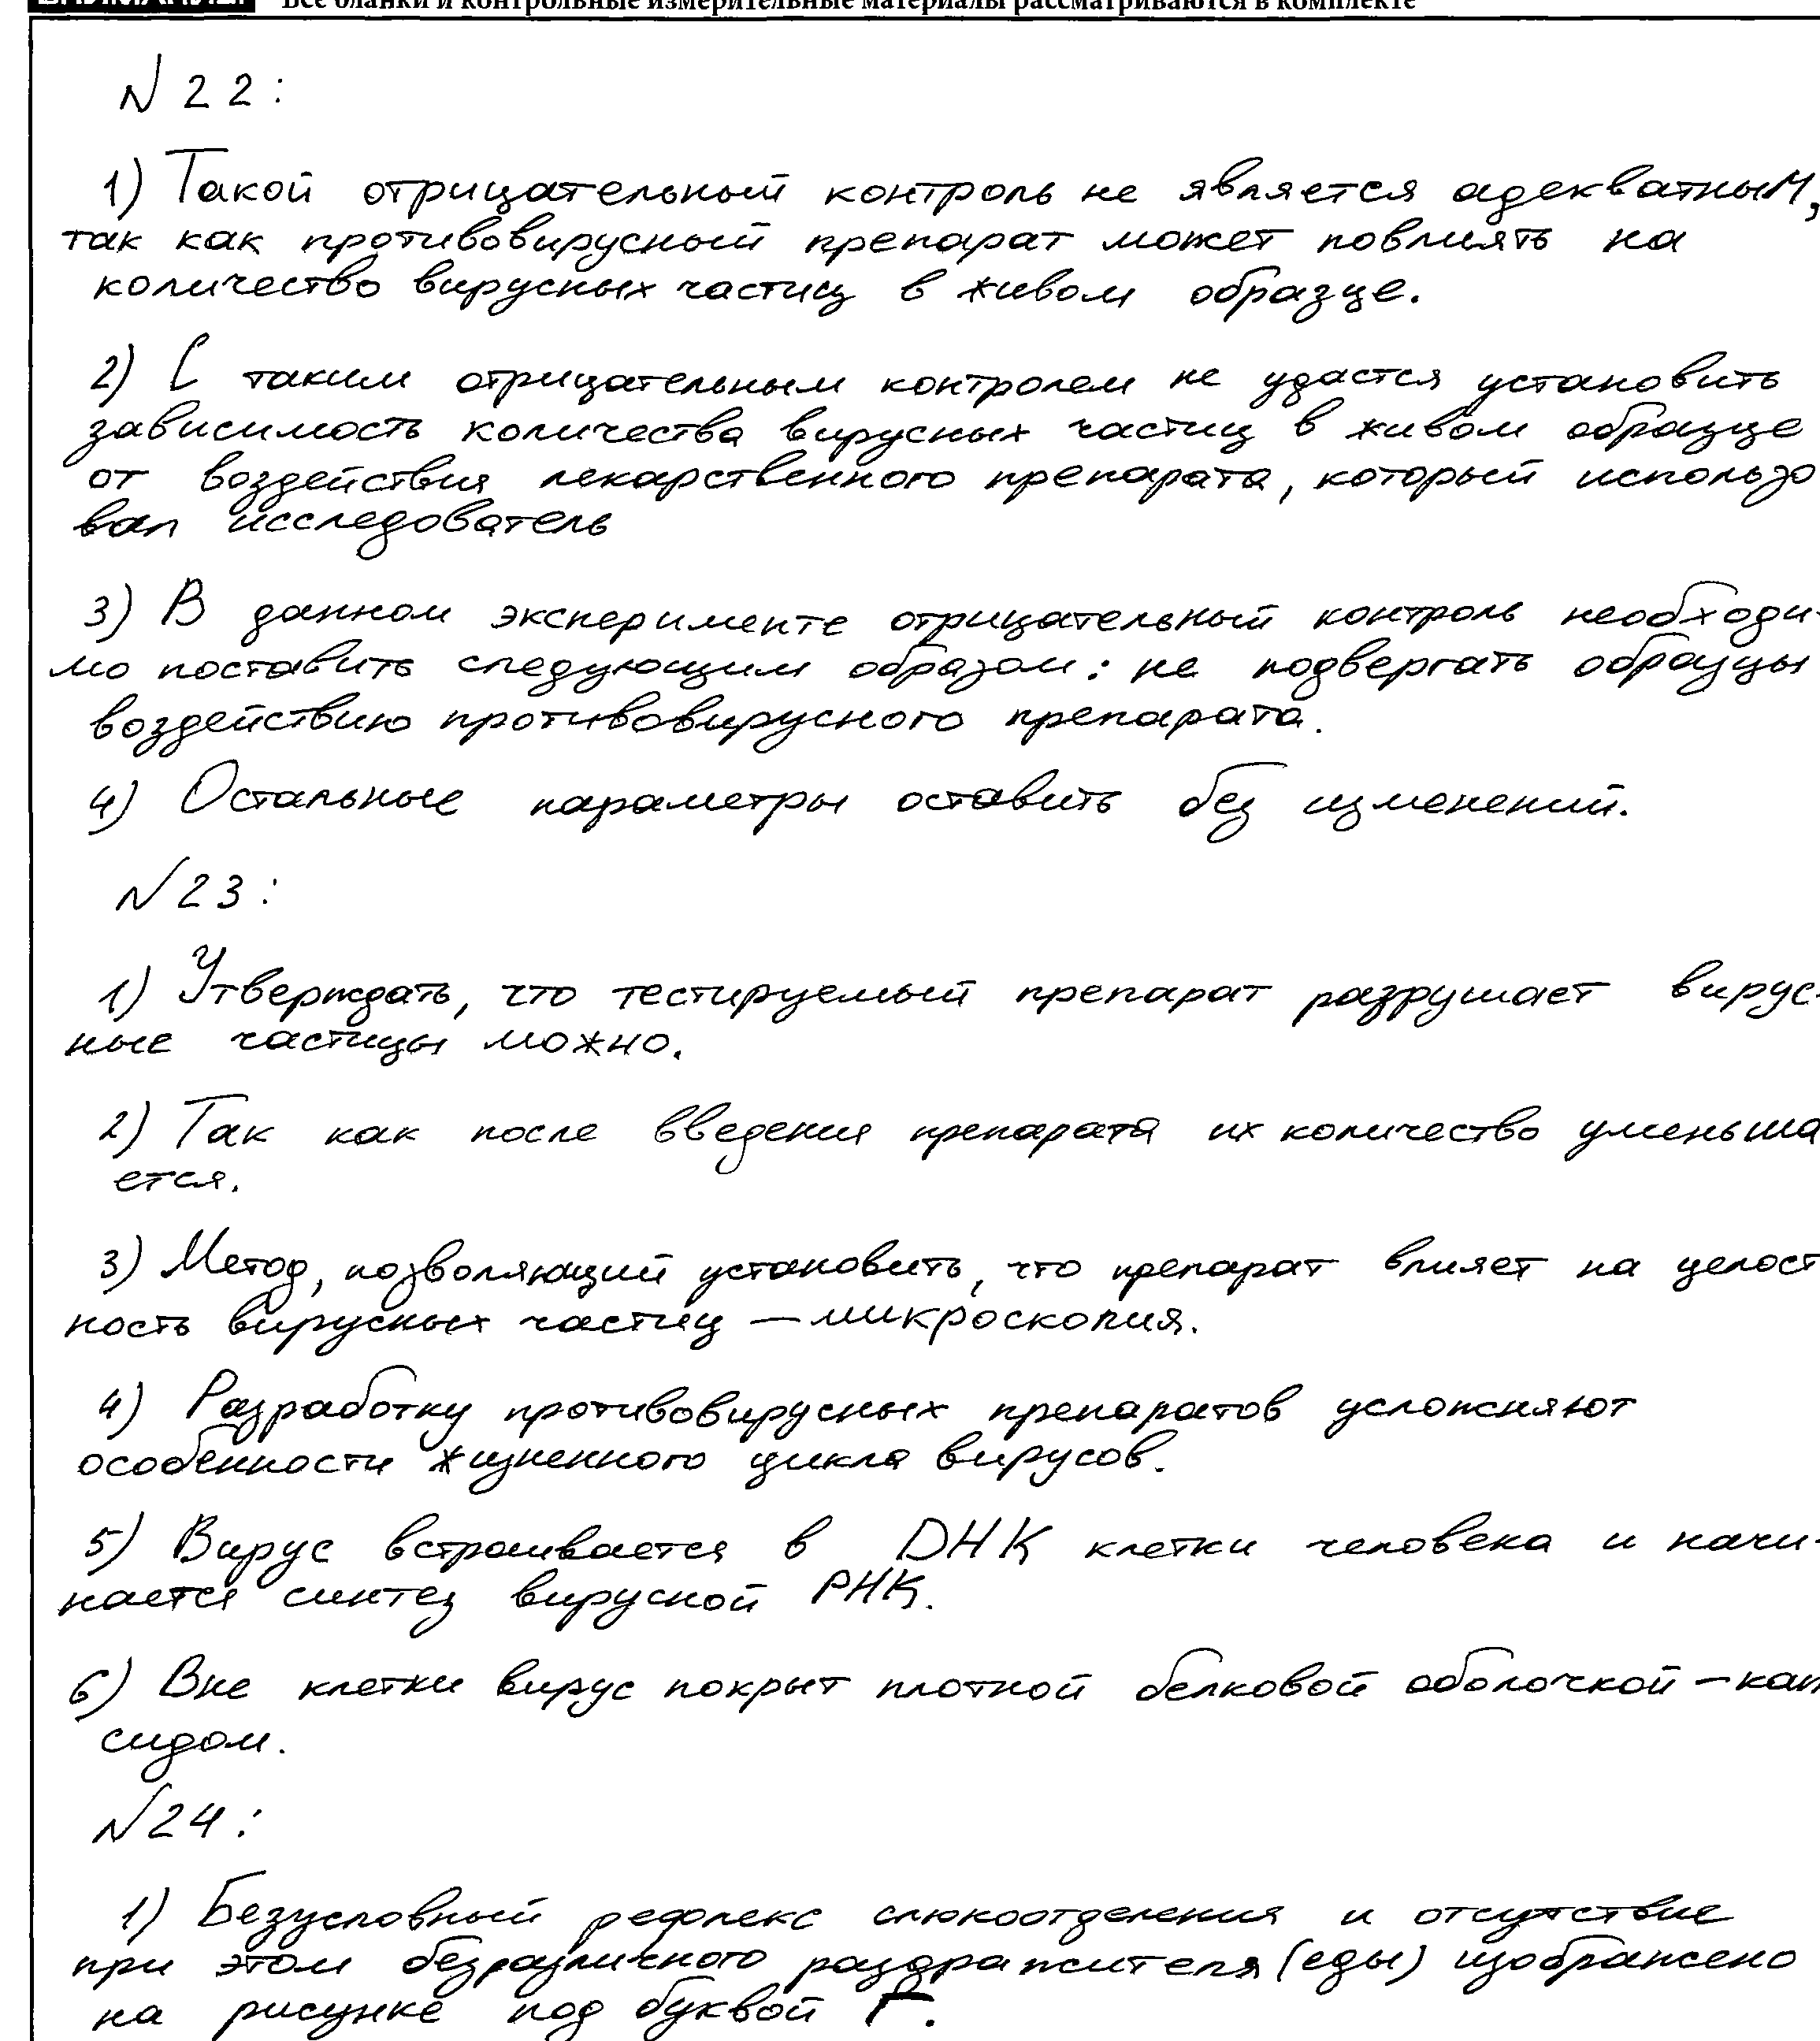 Все бланки и контрольные измерительные материалы рассматриваются в комплекте
№ 22:
1) Такой отрицательный контроль не является адекватным,
так как противовирусный препарат может повлиять на
количество вирусных частиц в живом образце.
2) С таким отрицательным контролем не удастся установить
зависимость количества вирусных частиц в живом образце
от воздействия лекарственного препарата, который использо
вал исследователь
3) В данном эксперименте отрицательный контроль необходи-
мо поставить следующим образом: не подвергать образцы
воздействию противовирусного препарата.
4) Остальные параметры оставить без изменений.
№ 23:
1) Утверждать, что тестируемый препарат разрушает вирус-
ные частицы можно.
2) Так как после введения препарата их количество уменьша
ется.
3) Метод, позволяющий установить, что препарат влияет на целост
ность вирусных частиц — микроскопия.
4) Разработку противовирусных препаратов усложняют
особенности жизненного цикла вирусов.
5) Вирус встраивается в ДНК клетки человека и начи-
нается синтез вирусной РНК.
6) Вне клетки вирус покрыт плотной белковой оболочкой – кап
сидом.
№ 24:
1) Безусловный рефлекс слюноотделения и отсутствие
при этом безразличного раздражителя (еды) изображено
на рисунке под буквой Г.